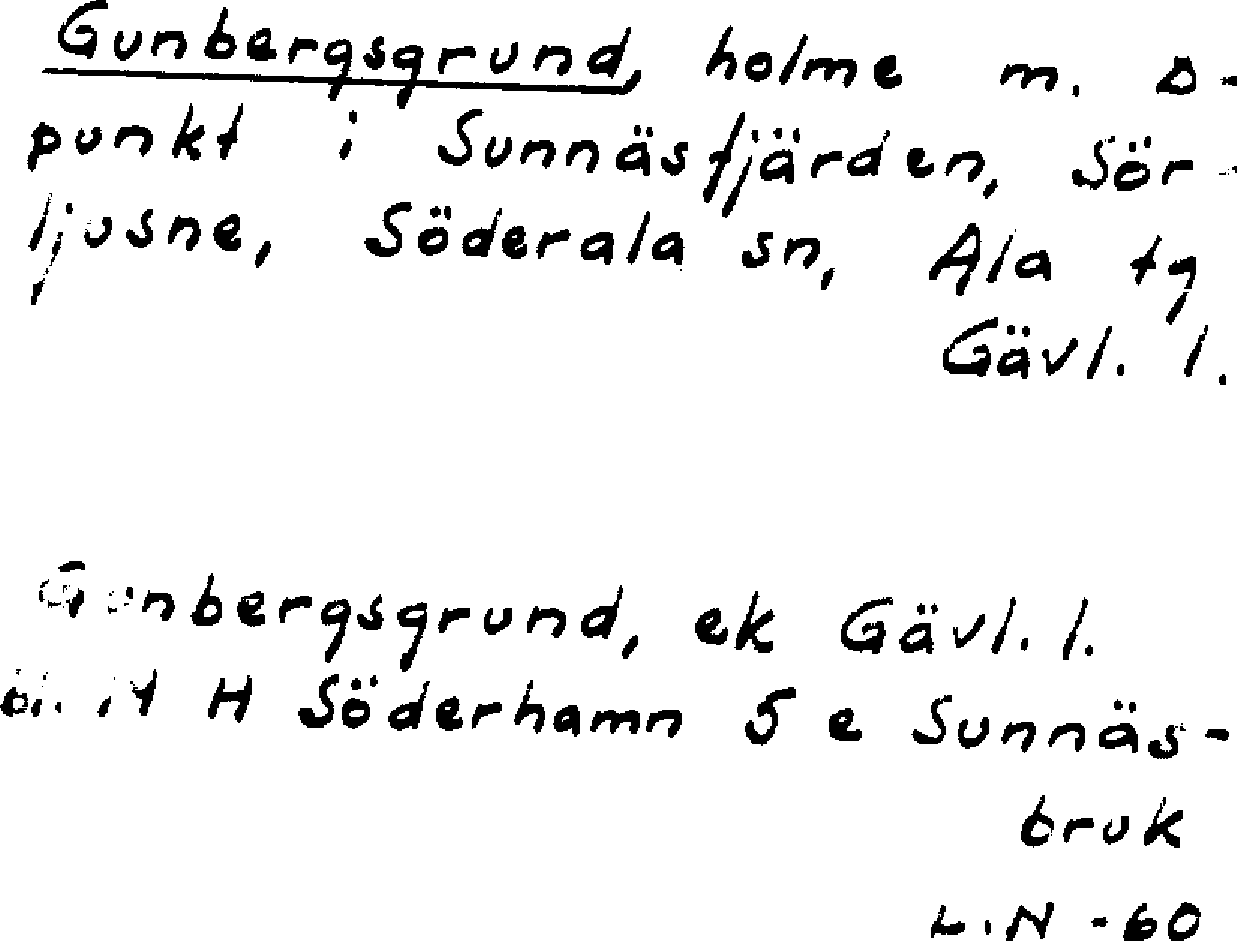 Gunbergsgrund, holme m. Δ-
punkt i Sunnäsfjärden, Sör-
ljusne, Söderala sn, Ala tg
Gävl. l.
Gunbergsgrund, ek Gävl. l.
bl. 14 H Söderhamn 5 e Sunnäs-
bruk
L.N -60